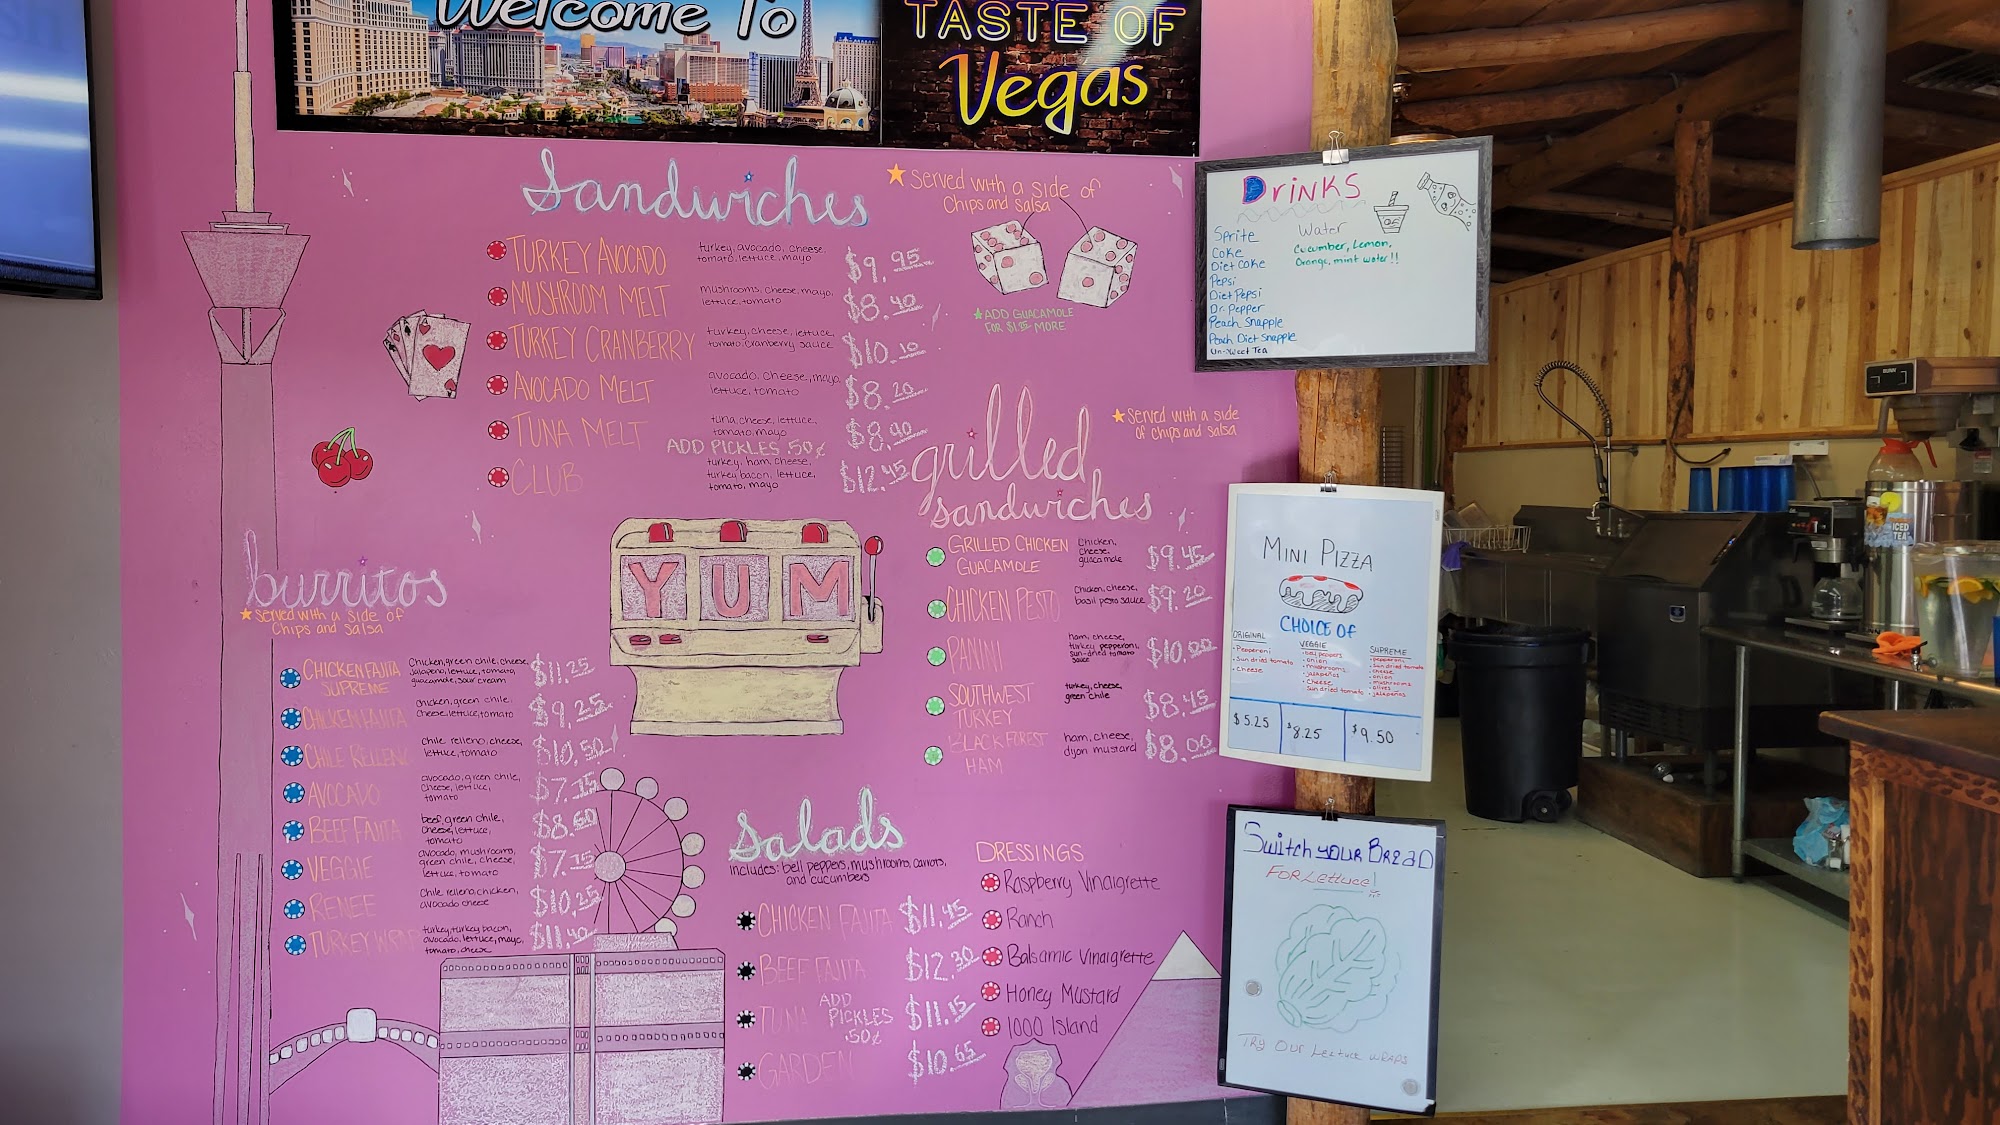 Welcome To
TASTE OF
Vegas
Sandwiches
Served with a side of
Chips and Salsa
TURKEY AVOCADO
turkey, avocado, cheese,
tomato, lettuce, mayo
$9.95
MUSHROOM MELT
mushrooms, cheese, mayo,
lettuce, tomato
$8.40
TURKEY CRANBERRY
turkey, cheese, lettuce,
tomato, cranberry sauce
$10.10
AVOCADO MELT
avocado, cheese, mayo,
lettuce, tomato
$8.20
TUNA MELT
tuna, cheese, lettuce,
tomato, mayo
ADD PICKLES .50¢
$8.90
CLUB
turkey, ham, cheese,
turkey bacon, lettuce,
tomato, mayo
$12.45
ADD GUACAMOLE
FOR MORE
grilled
sandwiches
Served with a side
of chips and salsa
GRILLED CHICKEN
GUACAMOLE
Chicken,
cheese,
guacamole
$9.45
CHICKEN PESTO
Chicken, cheese,
basil pesto sauce
$9.20
PANINI
ham, cheese,
turkey pepperoni,
sun-dried tomato
sauce
$10.00
SOUTHWEST
TURKEY
turkey, cheese,
green chile
$8.45
BLACK FOREST
HAM
ham, cheese,
dijon mustard
$8.00
YUM
burritos
Served with a side of
Chips and Salsa
CHICKEN FAJITA
SUPREME
Chicken, green chile, cheese,
jalapeno, lettuce, tomato,
guacamole, sour cream
$11.25
CHICKEN FAJITA
chicken, green chile,
cheese, lettuce, tomato
$9.25
CHILE RELLENO
chile relleno, cheese,
lettuce, tomato
$10.50
AVOCADO
avocado, green chile,
cheese, lettuce,
tomato
BEEF FAJITA
beef, green chile,
cheese, lettuce,
tomato
$8.60
VEGGIE
avocado, mushrooms,
green chile, cheese,
lettuce, tomato
RENEE
chile relleno, chicken,
avocado cheese
$10.25
TURKEY WRAP
turkey, turkey bacon,
avocado, lettuce, mayo,
tomato, cheese
$11.40
Salads
includes: bell peppers, mushrooms, carrots,
and cucumbers
CHICKEN FAJITA $11.45
BEEF FAJITA $12.30
TUNA ADD
PICKLES
.50¢
$11.15
GARDEN $10.65
DRESSINGS
Raspberry Vinaigrette
Ranch
Balsamic Vinaigrette
Honey Mustard
1000 Island
DRINKS
Sprite
Coke
Diet Coke
Pepsi
Diet Pepsi
Dr. Pepper
Peach Snapple
Peach Diet Snapple
Un-Sweet Tea
Water
Cucumber, Lemon,
Orange, mint water!!
MINI PIZZA
CHOICE OF
ORIGINAL
• Pepperoni
• Sun dried tomato
• Cheese
$5.25
VEGGIE
• bell peppers
• onion
• mushrooms
• jalapeños
• Cheese
Sun dried tomato
$8.25
SUPREME
• pepperoni
• sun dried tomato
• cheese
• onion
• mushrooms
• olives
• jalapeños
$9.50
Switch your Bread
For Lettuce!
Try Our Lettuce wraps
BUNN
ICED
TEA